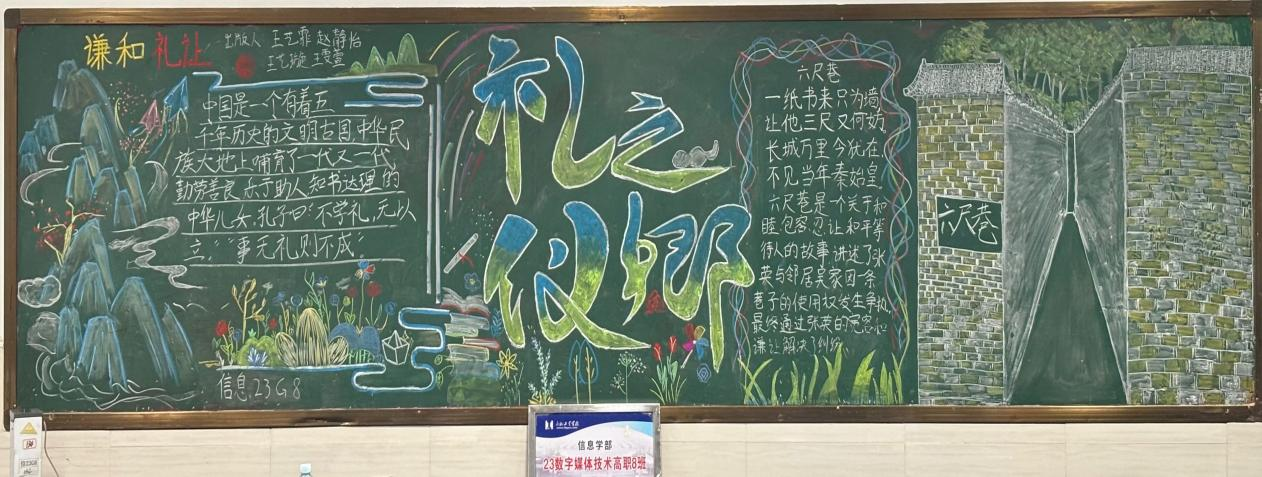 谦和礼让
出版人 王艺霏 赵静怡
王艺璇 王雯萱
中国是一个有着五
千年历史的文明古国中华民
族大地上哺育了一代又一代
勤劳善良乐于助人知书达理的
中华儿女,孔子曰"不学礼,无以
立,""事无礼则不成"
信息23G8
礼之
仪乡
六尺巷
一纸书来只为墙
让他三尺又何妨
长城万里今犹在
不见当年秦始皇
六尺巷是一个关于和
睦包容忍让和平等
待人的故事讲述了张
英与邻居吴家因一条
巷子的使用权发生争执,
最终通过张英的宽容和
谦让解决了纠纷。
六尺巷
信息学部
23数字媒体技术高职8班